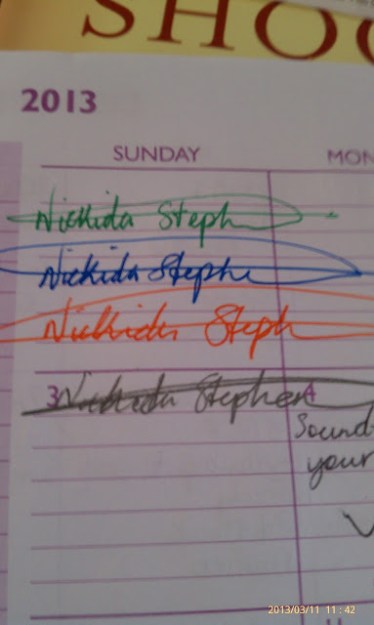 SHO
2013
SUNDAY MON
Nickida Steph
Nickida Stephe
Nickida Steph
3 Nickida Stephen 4
Sound
your
2013/03/11 11:42